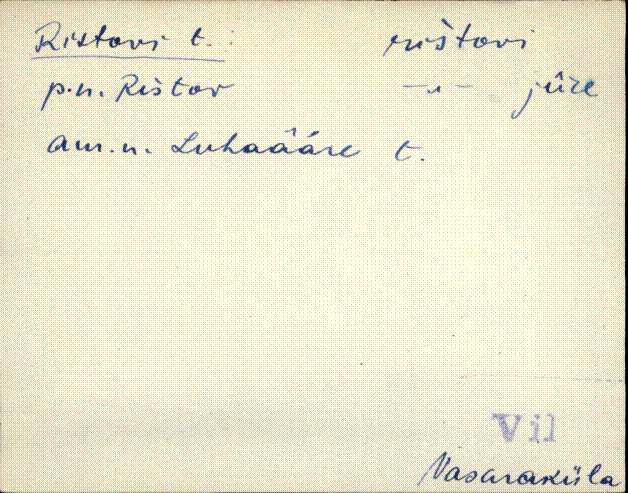 Ristovi t. rištovi
p.n. Ristov —"— jüre
am.n. Luhaääre t.
Vil
Vasaraküla